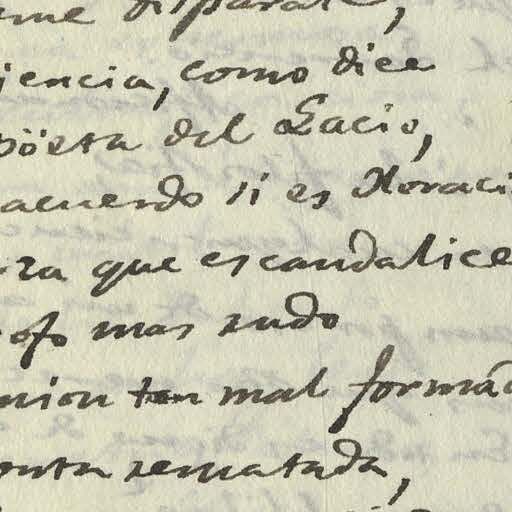 eme disparate,
iencia, como dice
pöeta del Lacio,
acuerdo si es Horaci
ra que escandalice
ofo mas rudo
nion tan mal formád
onta rematada,